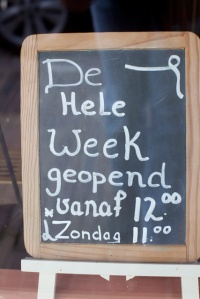 De
Hele
Week
geopend
vanaf 12.00
Zondag 11.00